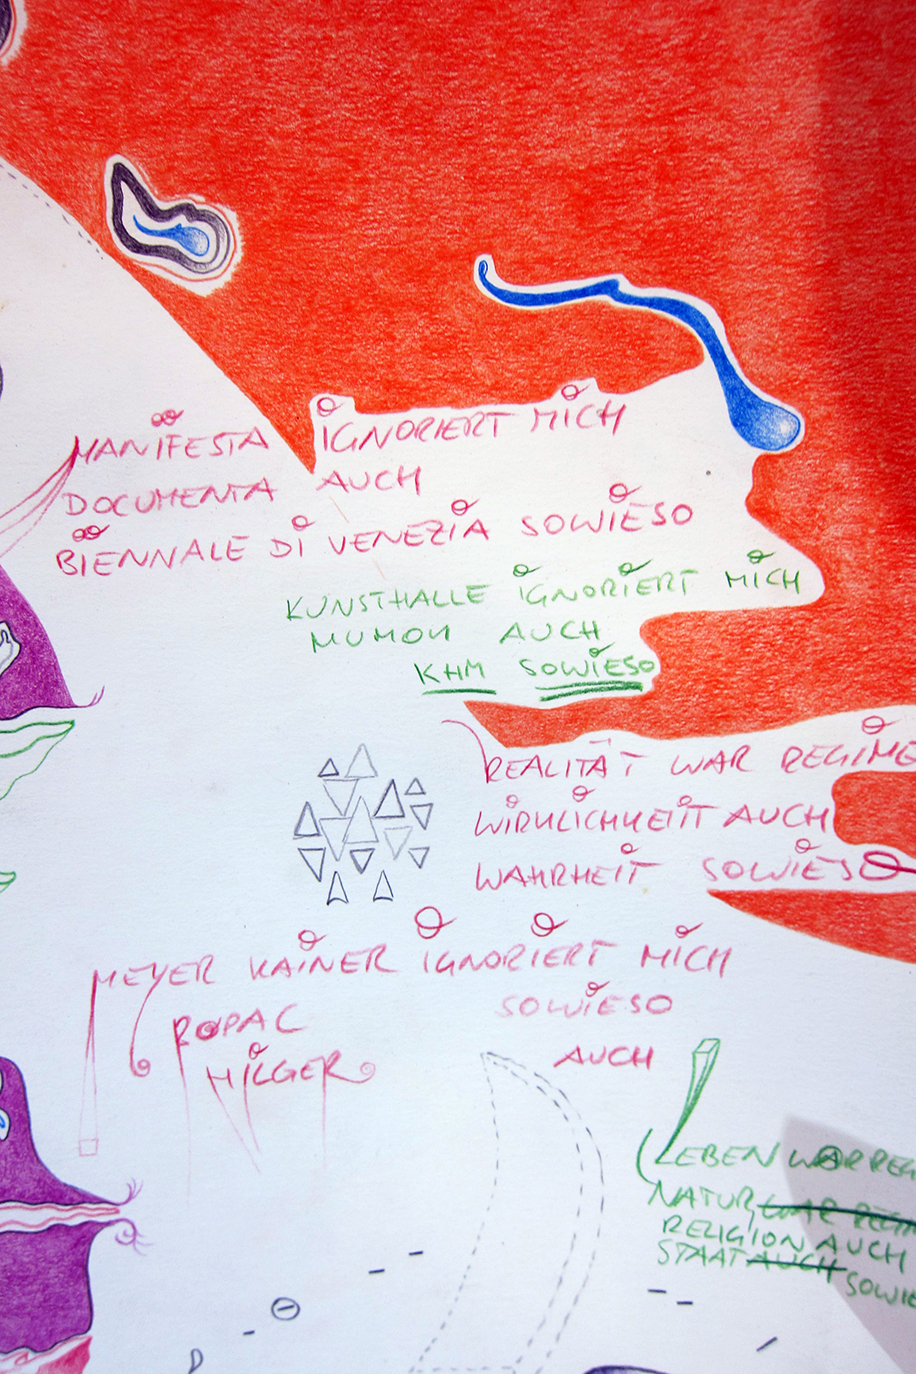 MANIFESTA IGNORIERT MICH
DOCUMENTA AUCH
BIENNALE DI VENEZIA SOWIESO
KUNSTHALLE IGNORIERT MICH
MUMOK AUCH
KHM SOWIESO
REALITÄT WAR REGIME
WIRKLICHKEIT AUCH
WAHRHEIT SOWIESO
MEYER KAINER IGNORIERT MICH
ROPAC SOWIESO
HILGER AUCH
LEBEN WAR REG
NATUR, WAR REGIM
RELIGION AUCH
STAAT AUCH SOWIE